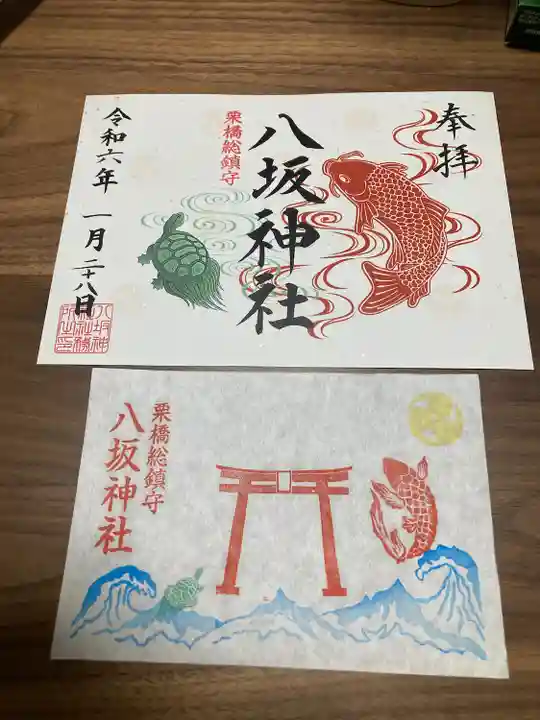 奉拝
八坂神社
栗橋総鎮守
令和六年 一月二十八日
八坂神
社社務
所之印
栗橋総鎮守
八坂神社